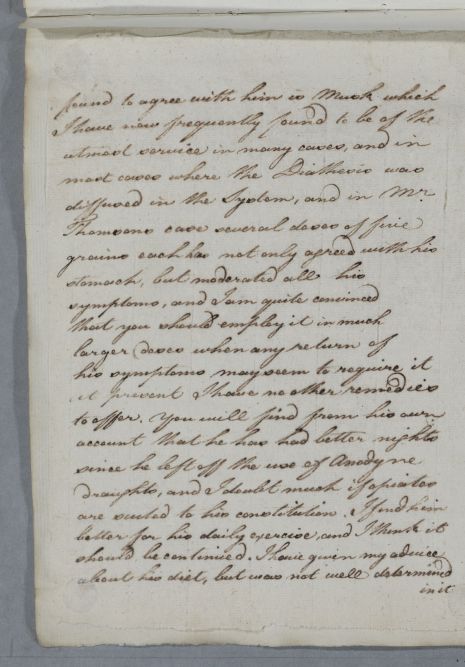 found to agree with him is Musk which
I have now frequently found to be of the
utmost service in many cases, and in
most cases where the Diathesis was
diffused in the System, and in Mr.
Thomsons case several doses of five
grains each has not only agreed with his
stomach, but moderated all his
symptoms, and I am quite convinced
that you should employ it in much
larger doses when any return of
his symptoms may seem to require it
at present I have no other remedies
to offer. You will find from his own
account that he has had better nights
since he left off the use of Anodyne
draughts, and I doubt much if opiates
are suited to his constitution. I find him
better for his daily exercise, and I think it
should be continued. I have given my advice
about his diet, but was not well determined
in it